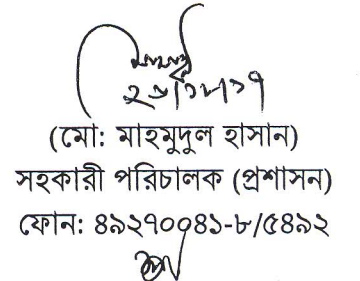 (মো: মাহমুদুল হাসান)
সহকারী পরিচালক (প্রশাসন)
ফোন: ৪৯২৭০০৪১-৮/৫৪৯২